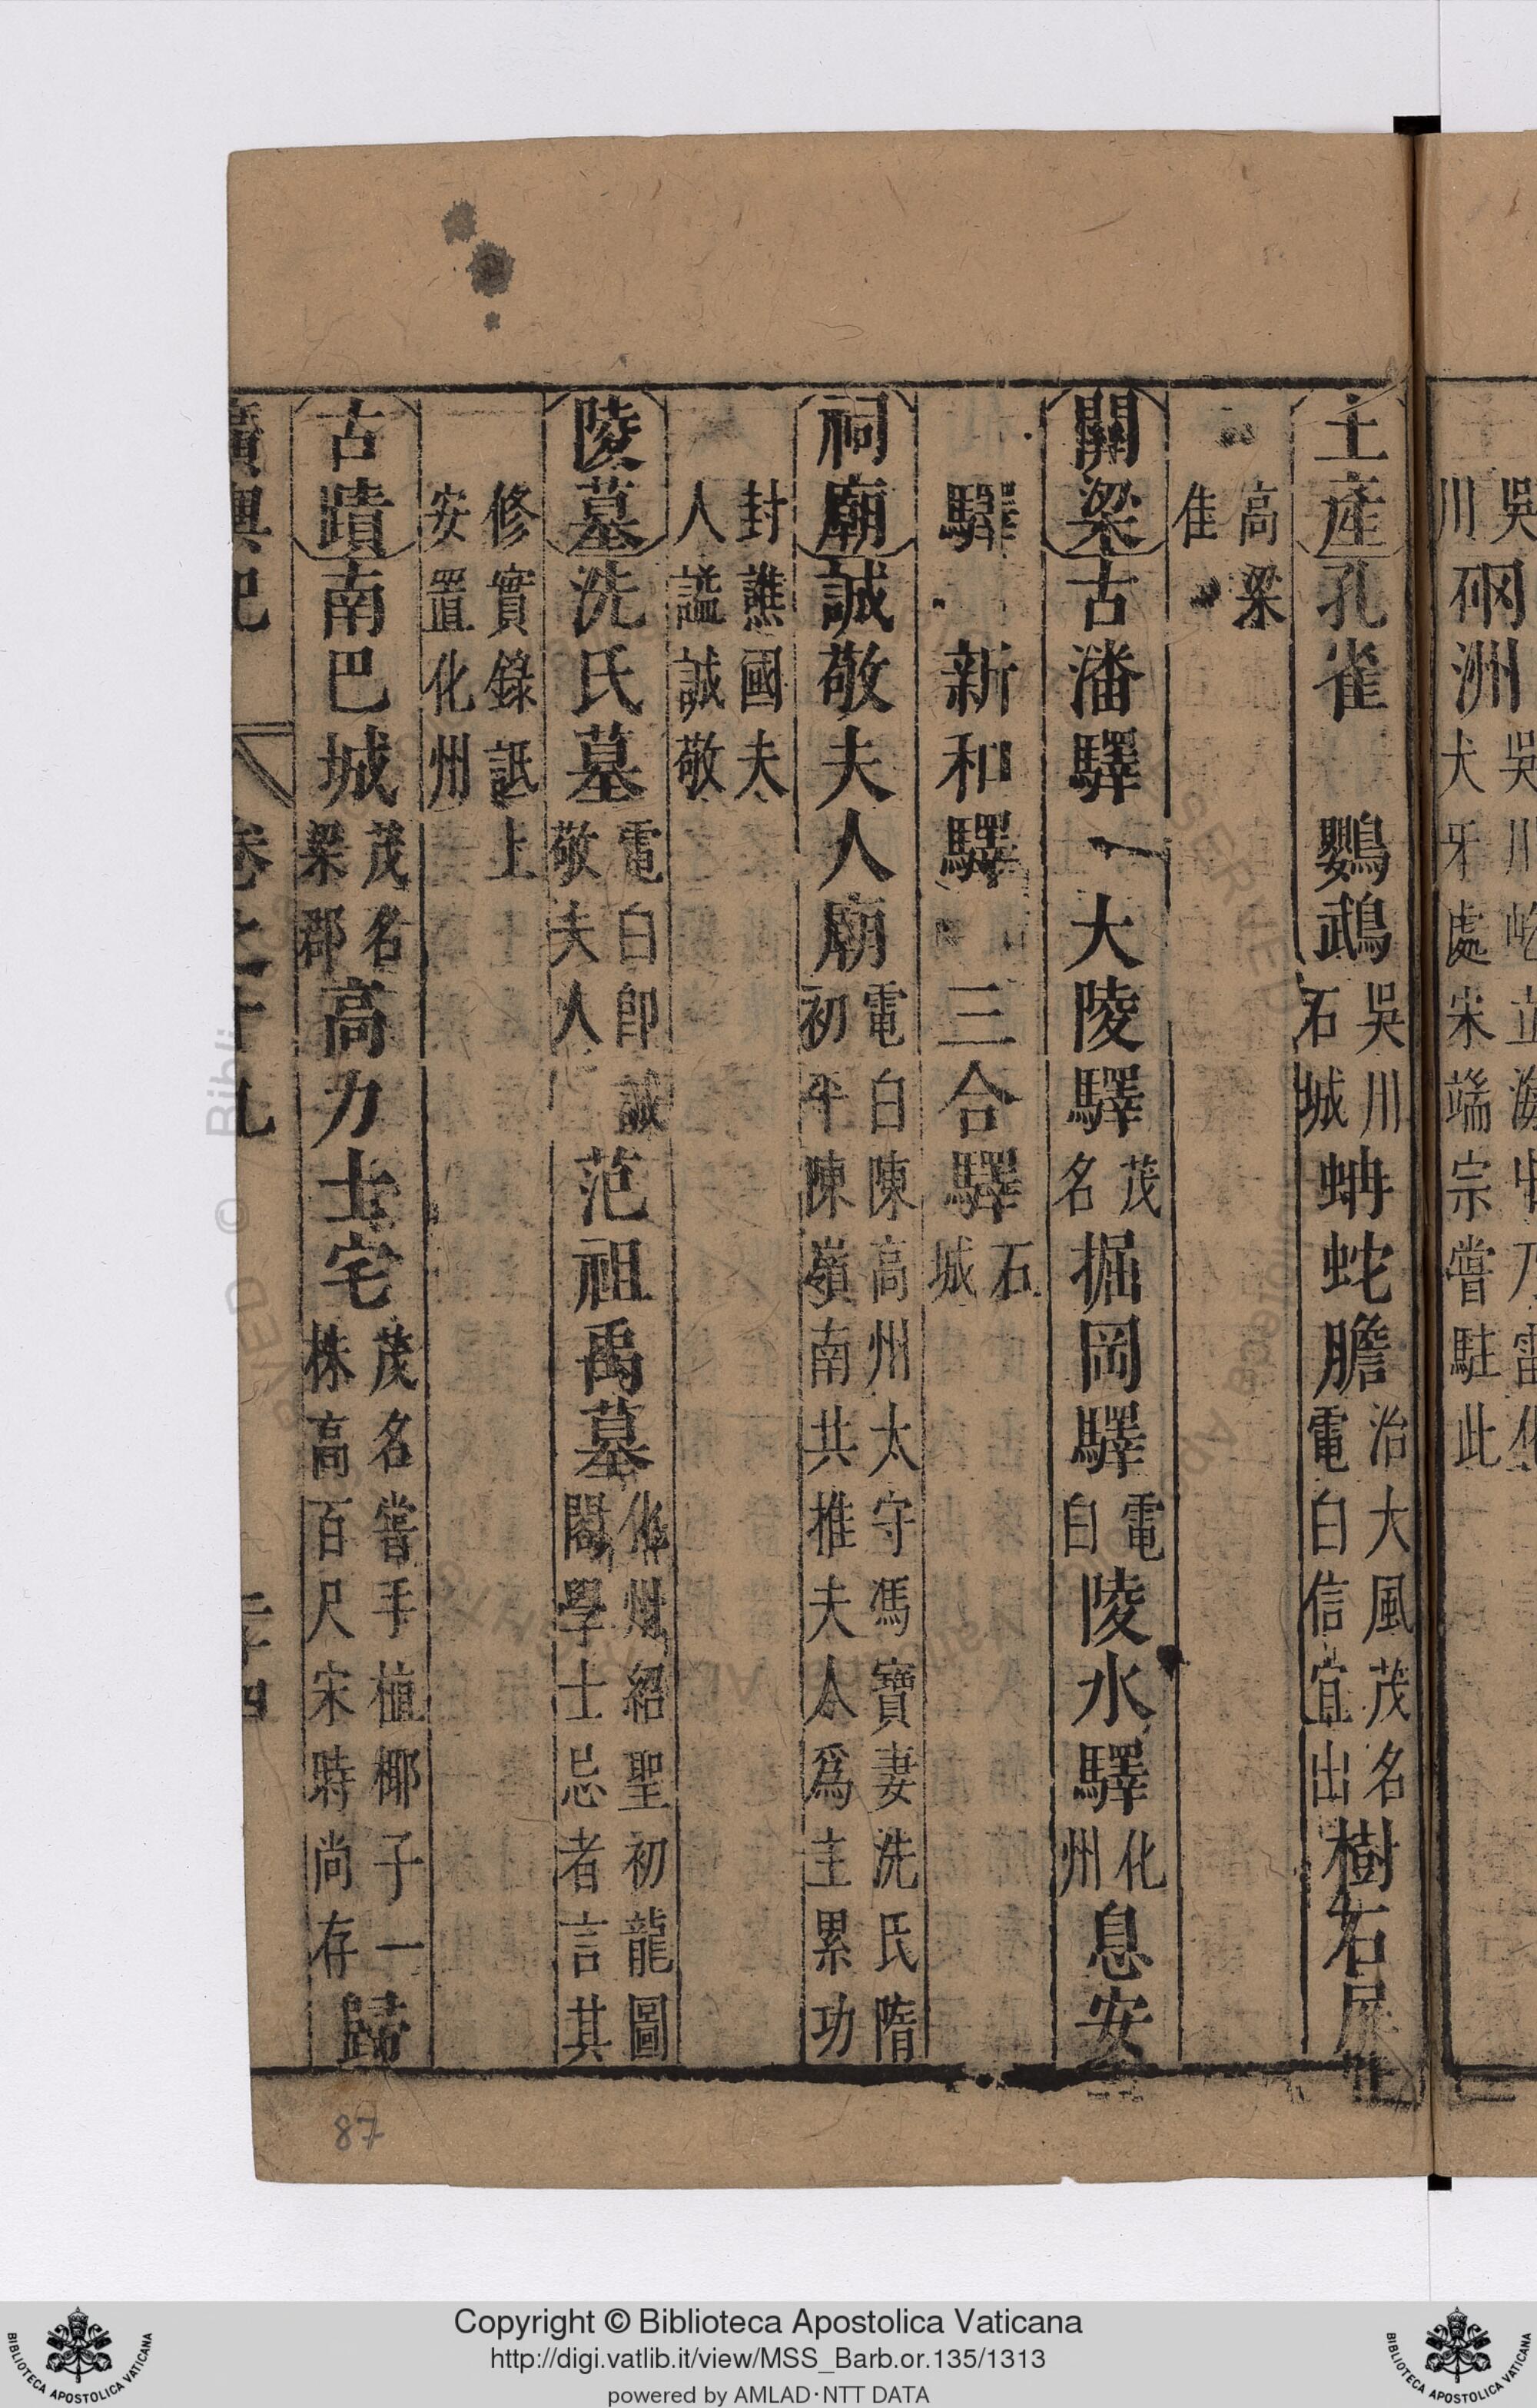 吳川硇洲吳川屹立海中乃雷化犬牙處宋端宗嘗駐此
土產孔雀 鸚鵡吳川石城蚺蛇膽治大風茂名電白信宜出樹石屏
高梁
隹
關梁古潘驛 大陵驛茂名掘岡驛電白陵水驛化州息安
驛 新和驛 三合驛石城
祠廟誠敬夫人廟電白陳高州太守馮寶妻洗氏隋初平陳嶺南共推夫人爲主累功
封譙國夫人謚誠敬
陵墓洗氏墓電白即誠敬夫人 范祖禹墓化州紹聖初龍圖閣學士忌者言其
修實錄詆上安置化州
古蹟南巴城茂名梁郡高力士宅茂名嘗手植椰子一株高百尺宋時尚存歸
廣輿記 卷之十九 二十四
87
© Bibli
Copyright © Biblioteca Apostolica Vaticana
http://digi.vatlib.it/view/MSS_Barb.or.135/1313
powered by AMLAD·NTT DATA
BIBLIOTECA APOSTOLICA VATICANA
BIBLIOTECA APOSTOLICA VATICANA